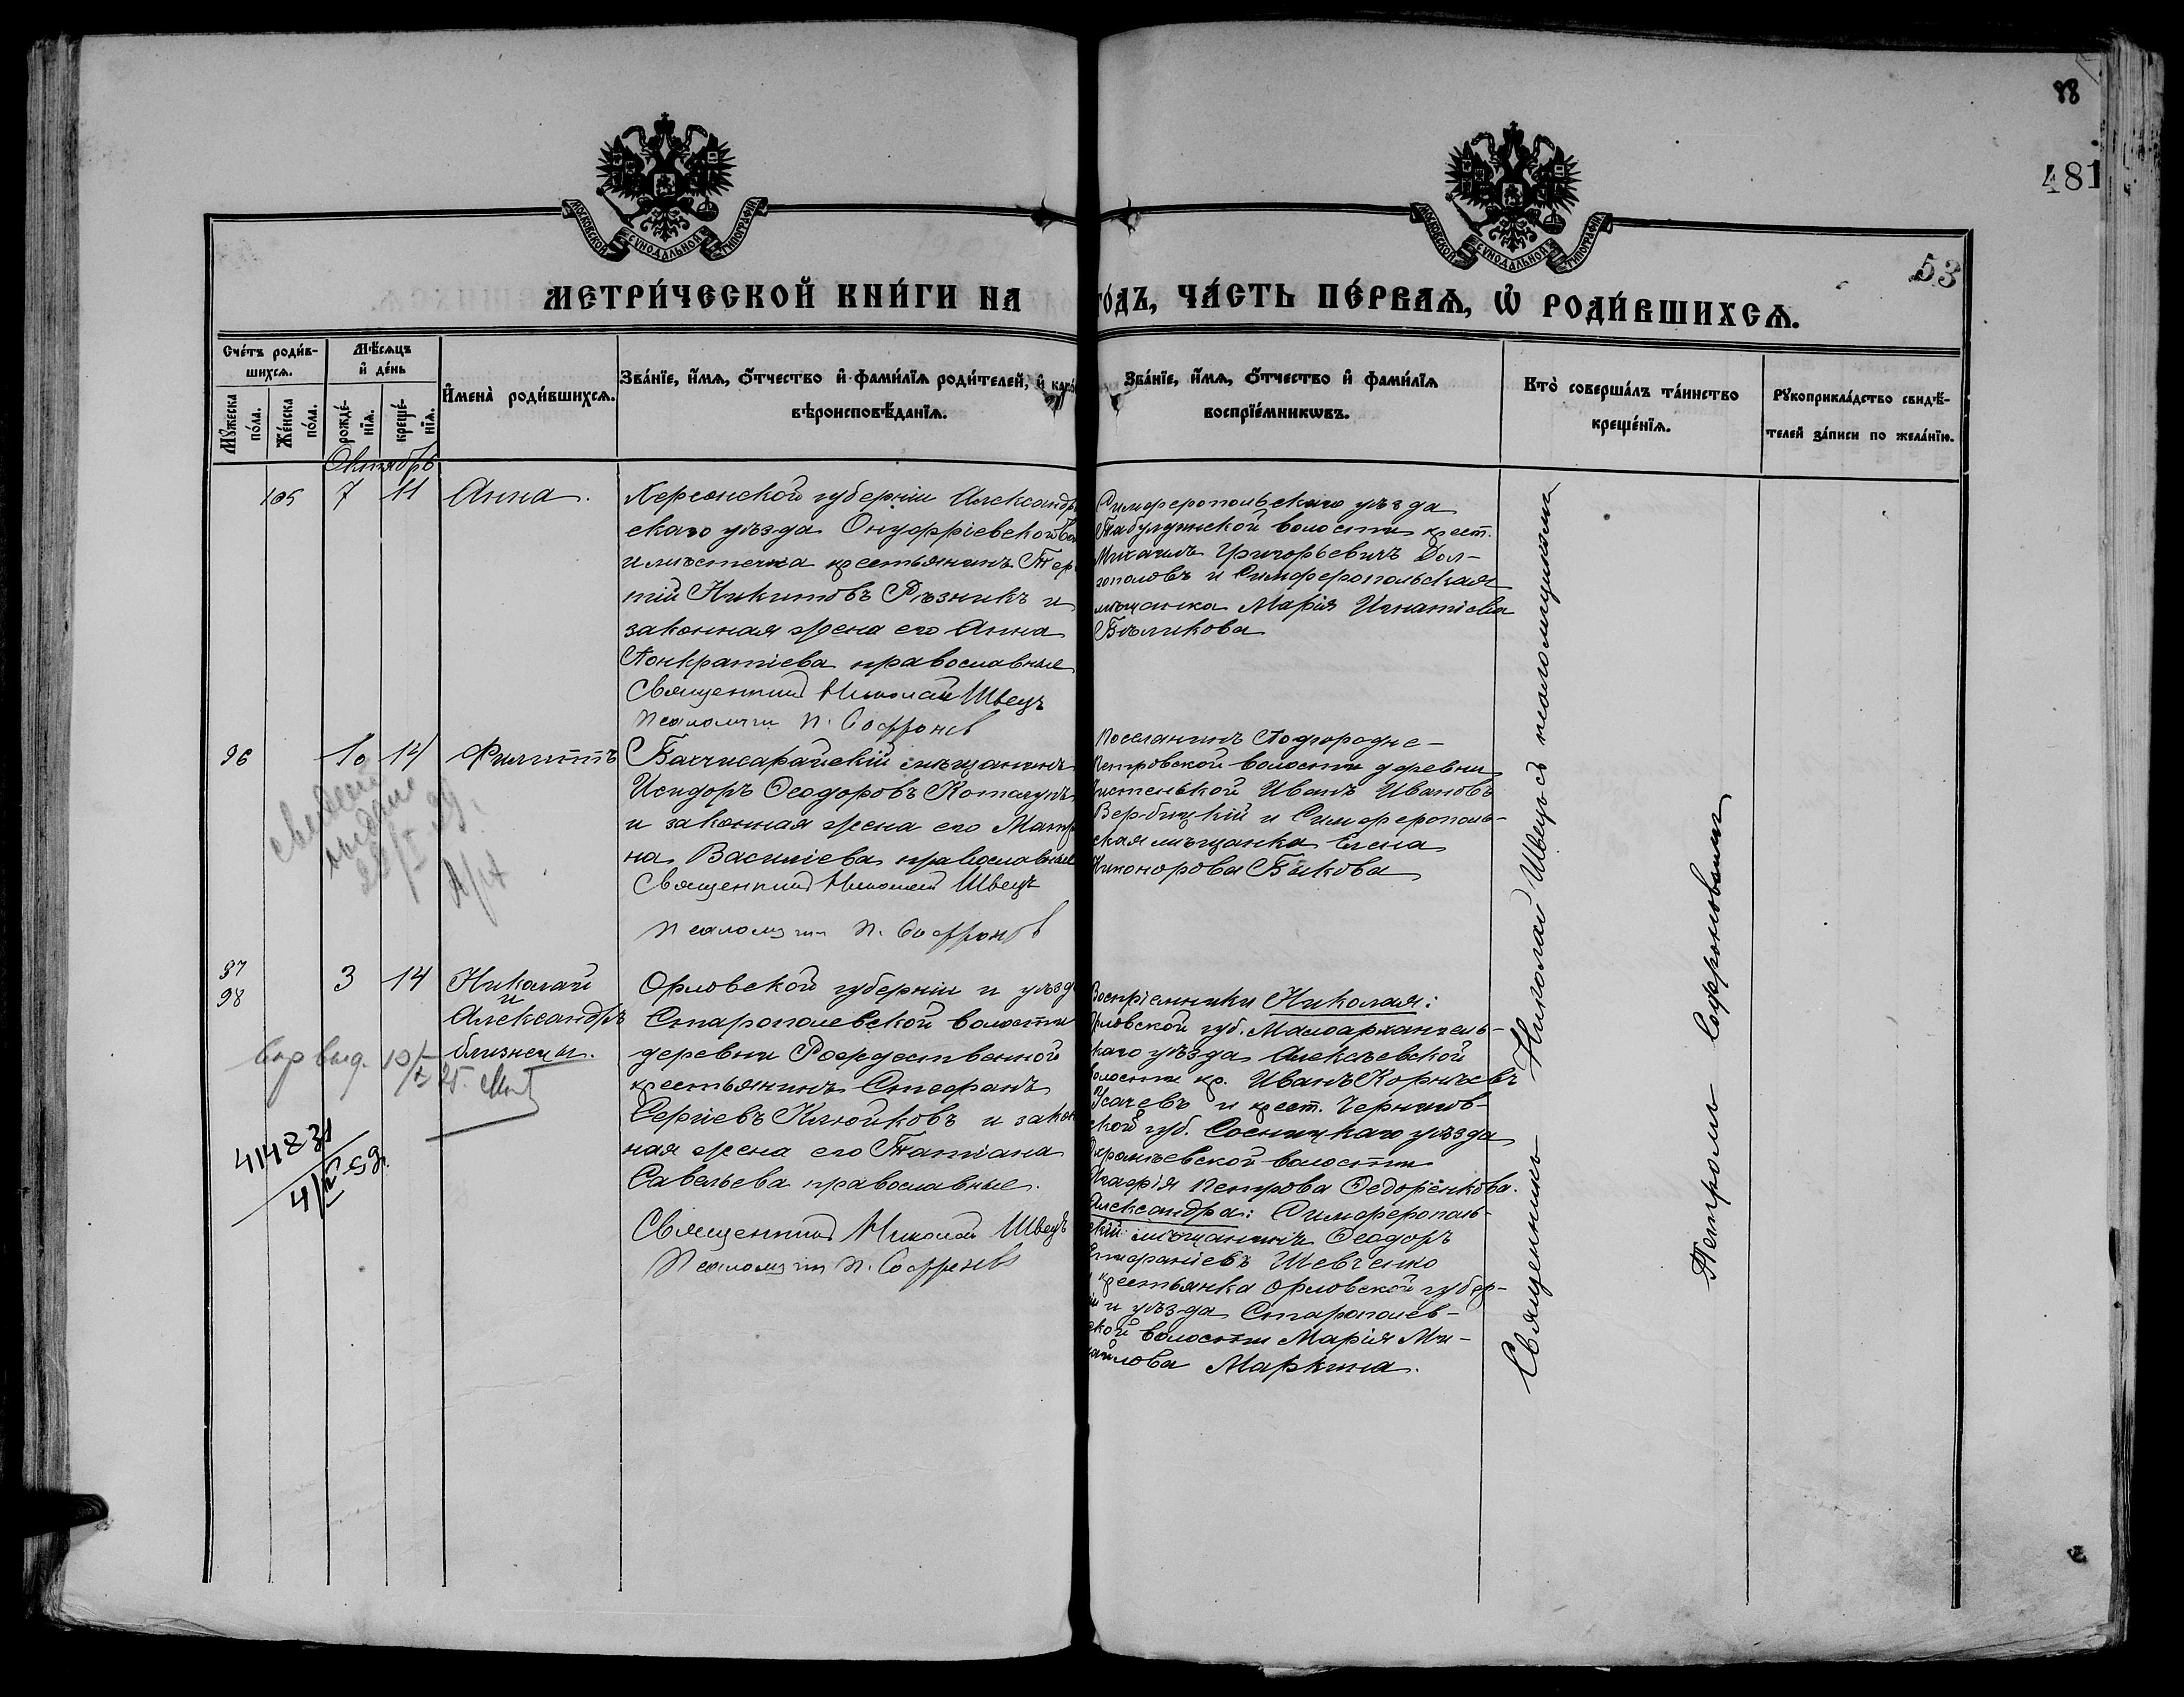 88
481
53
МОСКОВСКОЙ СѴНОДАЛЬНОЙ ТИПОГРАФІИ
МОСКОВСКОЙ СѴНОДАЛЬНОЙ ТИПОГРАФІИ
МЕТРИ́ЧЕСКОЙ КНИ́ГИ НА
ГО́ДЪ, ЧА́СТЬ ПЕ́РВАѦ, Ѡ҆ РОДИ́ВШИХСѦ.
Сче́тъ роди́в-
шихсѧ.
Мꙋ́жеска по́ла.
Же́нска по́ла.
Мѣ́сѧцъ
и҆ де́нь
рожде́-
нїѧ.
креще́-
нїѧ.
И҆мена̀ роди́вшихсѧ.
Зва́нїе, и҆́мѧ, ѻ҆́тчество и҆ фами́лїѧ роди́телей, и҆ како́
вѣроисповѣ́данїѧ.
Зва́нїе, и҆́мѧ, ѻ҆́тчество и҆ фами́лїѧ
воспрїе́мникѡвъ.
Кто̀ соверша́лъ та́инство
креще́нїѧ.
Рꙋкоприкла́дство свидѣ́-
телей за́писи по жела́нїю.
Октябрь
105 7 11 Анна.
Херсонской губерніи Александрі
скаго уѣзда Онуфріевской Вол
и мѣстечка крестьянинъ Тер
тій Никитовъ Рѣзникъ и
законная жена его Анна
Понкратіева православные
Священникъ Николай Швецъ
Псаломщ. П. Софроновъ
Симферопольскаго уѣзда
Табулдинской волости крест.
Михаилъ Григорьевичъ Дол-
гополовъ и Симферопольская
мѣщанка Марія Игнатіева
Бѣликова
96 10 14 Филиппъ
Бахчисарайскій мѣщанинъ
Исидоръ Ѳеодоровъ
и законная жена его Матр
на Василіева православные
Священникъ Николай Швецъ
Псаломщик П. Софроновъ
Поселянинъ Подгородне-
Петровской волости деревни
истенькой Иванъ Ивановъ
Вербицкій и Симферополь-
ская мѣщанка Елена
Никонорова Быкова
97
98
3 14 Николай
и
Александръ
близнецы.
Орловской губерніи и уѣзд
Старополевской волости
деревни Рождественной
крестьянинъ Стефанъ
Сергіевъ Клюйковъ и закон
ная жена его Татіана
Савельева православные.
Священникъ Николай Швецъ
Псаломщик П. Софроновъ
Воспріемники Николая:
Орловской губ. Малоархангель-
скаго уѣзда Алексѣевской
волости кр. Иванъ Корнѣевъ
Усачевъ и крест. Чернигов-
ской губ. Сосницкаго уѣзда
волости
Агафія Петрова Ѳедорёнкова.
Александра: Симферополь-
скій мѣщанинъ Ѳеодоръ
Шевченко
и крестьянка Орловской губер-
ніи и уѣзда Старополев-
ской волости Марія Ми-
хайлова Маркина.
Священникъ Николай Швецъ съ псаломщикомъ
Петромъ Софроновымъ
414231
4/IV-59.